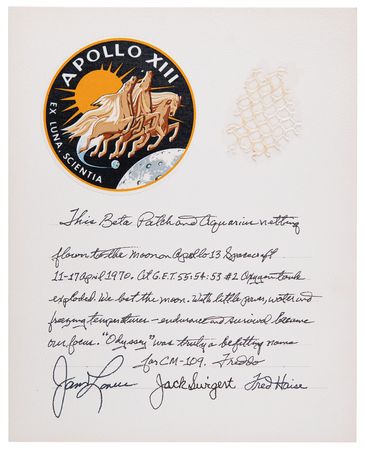 APOLLO XIII
EX LUNA, SCIENTIA
This Beta Patch and Aquarius netting
flown to the moon on Apollo 13 Spacecraft
11-17 April 1970. At G.E.T. 55:54:53 #2 Oxygen tank
exploded. We lost the moon. With little power, water and
freezing temperatures - endurance and survival became
our focus. "Odyssey" was truly a befitting name
for CM-109. Freddo
James Lovell Jack Swigert Fred Haise